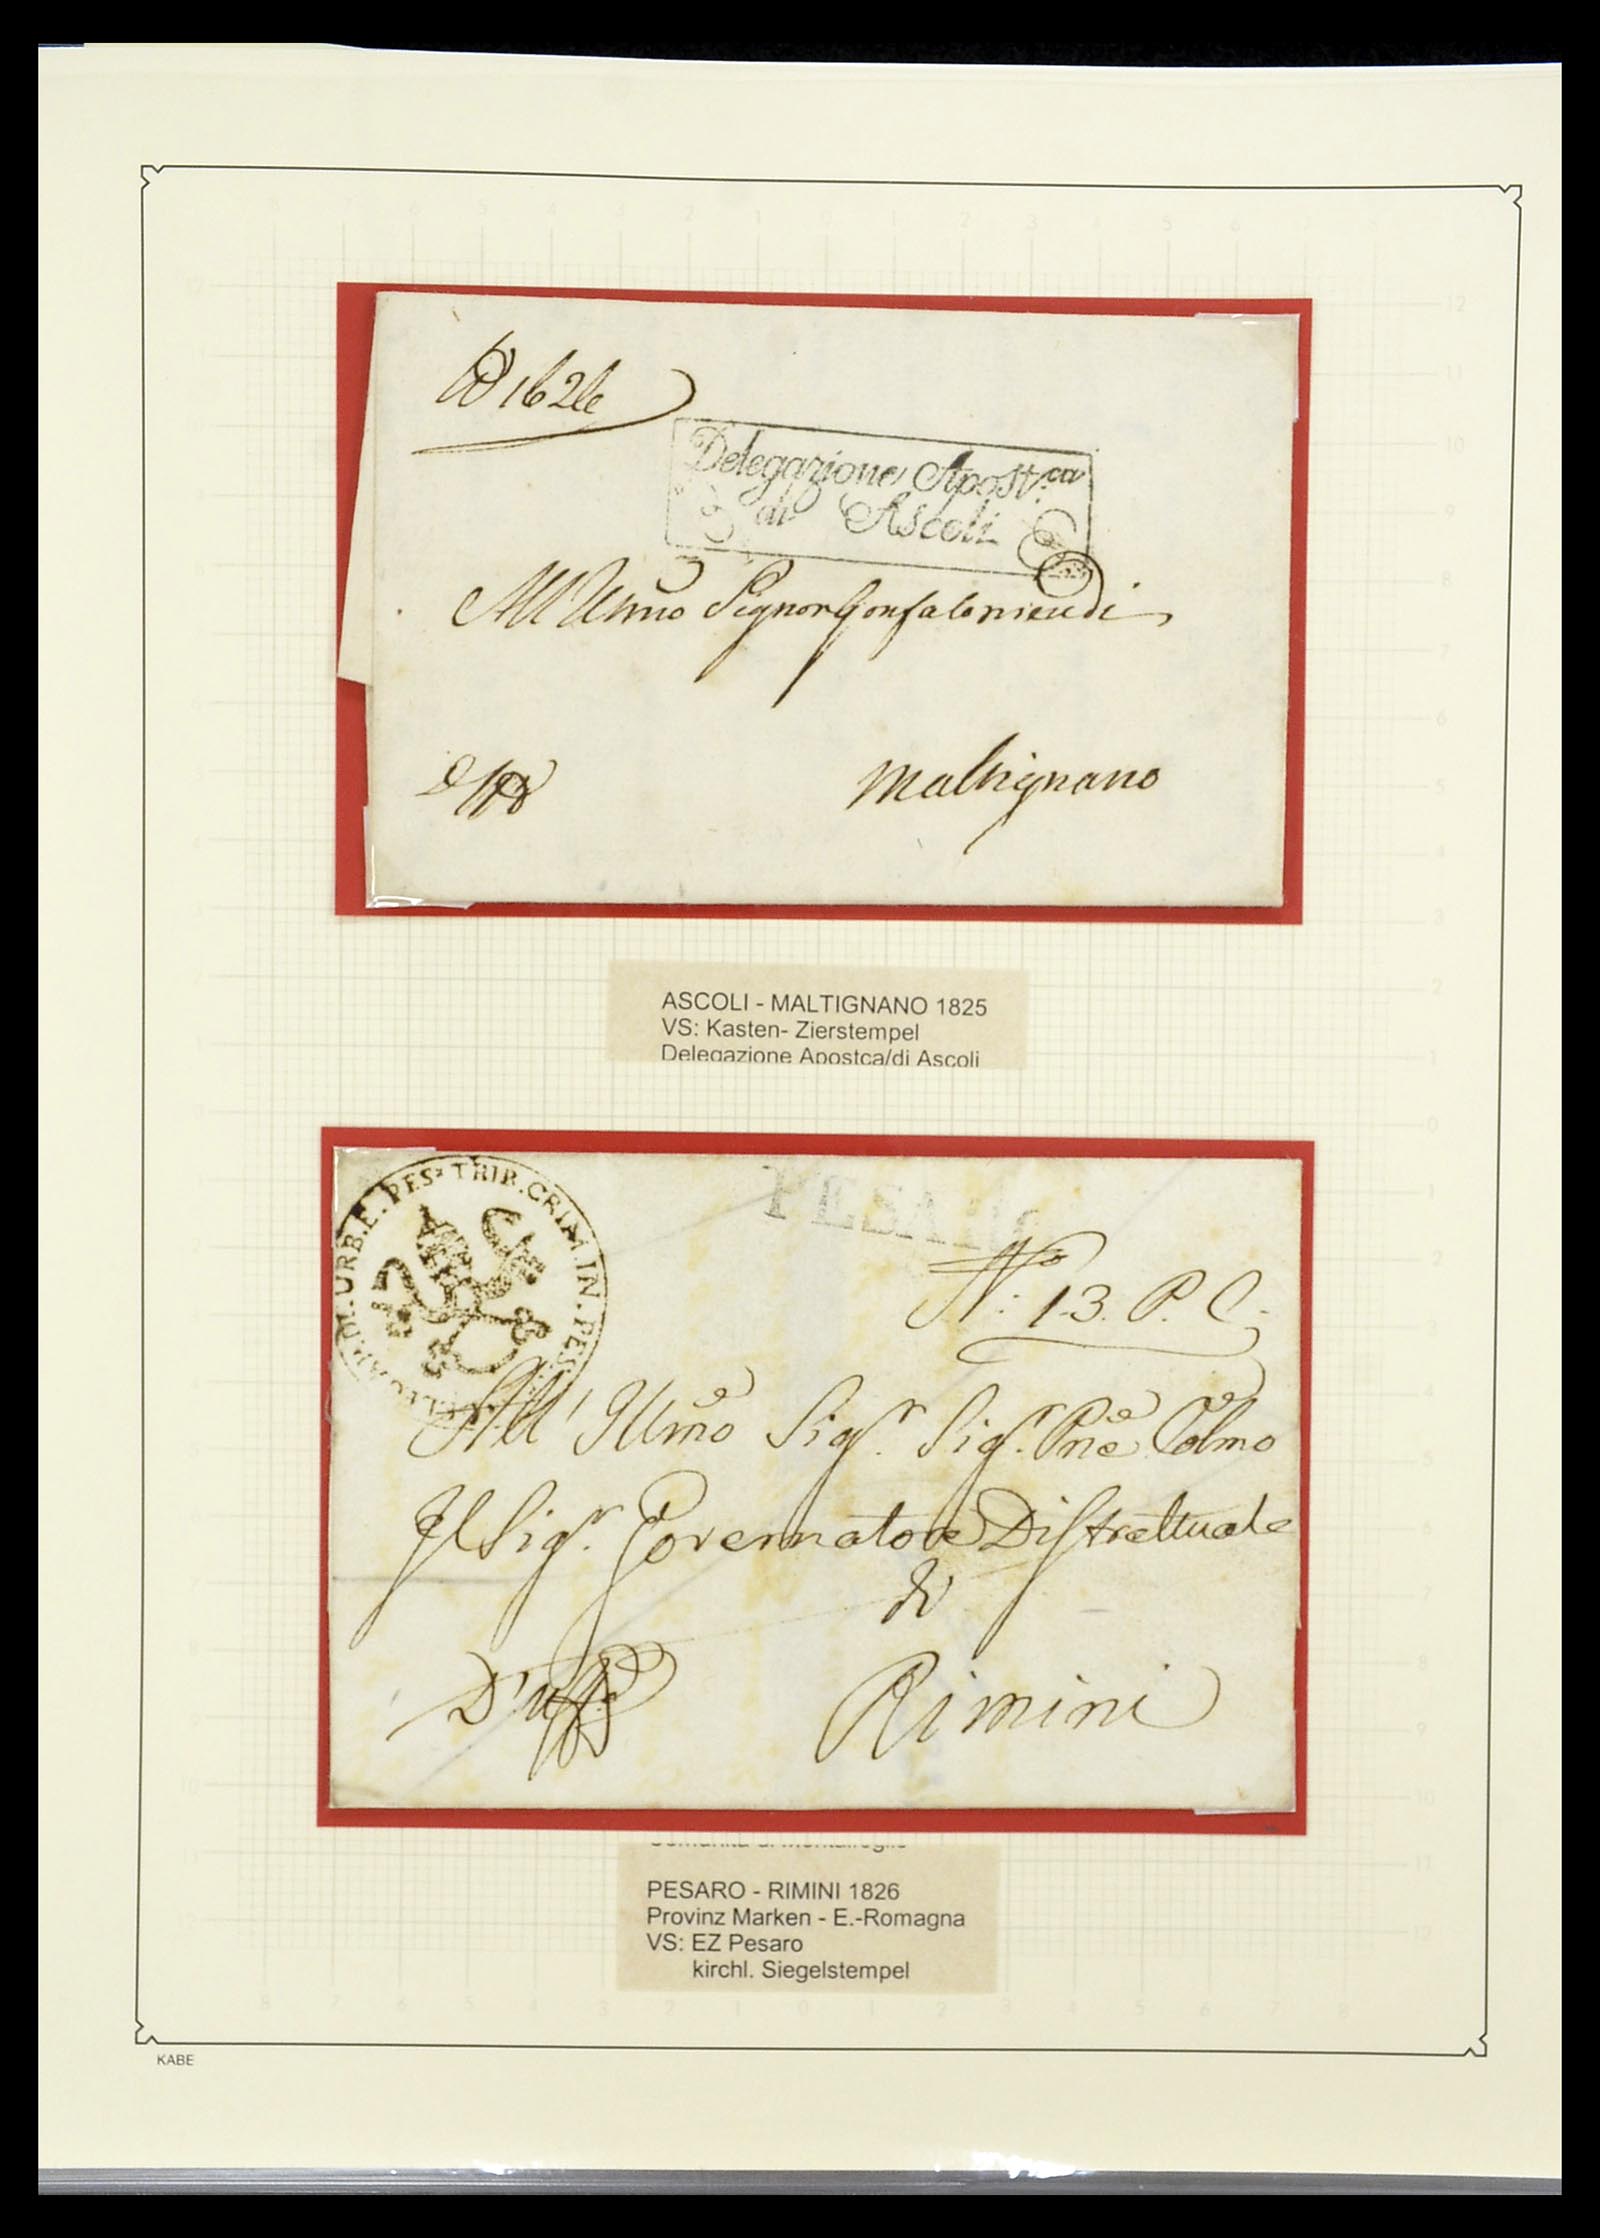 Delegazione Apost.ca
di Ascoli
All'Illmo Signor Gonfaloniere di
Maltignano
ASCOLI - MALTIGNANO 1825
VS: Kasten- Zierstempel
Delegazione Apostca/di Ascoli
URB.E.PES TRIB.CRIM.IN.PES
PESARO
No: 13. P. C.
All' Illmo Sigr. Sigr. Pne Colmo
Il Sigr. Governatore Distrettuale
di
D'uffo Rimini
PESARO - RIMINI 1826
Provinz Marken - E.-Romagna
VS: EZ Pesaro
kirchl. Siegelstempel
KABE